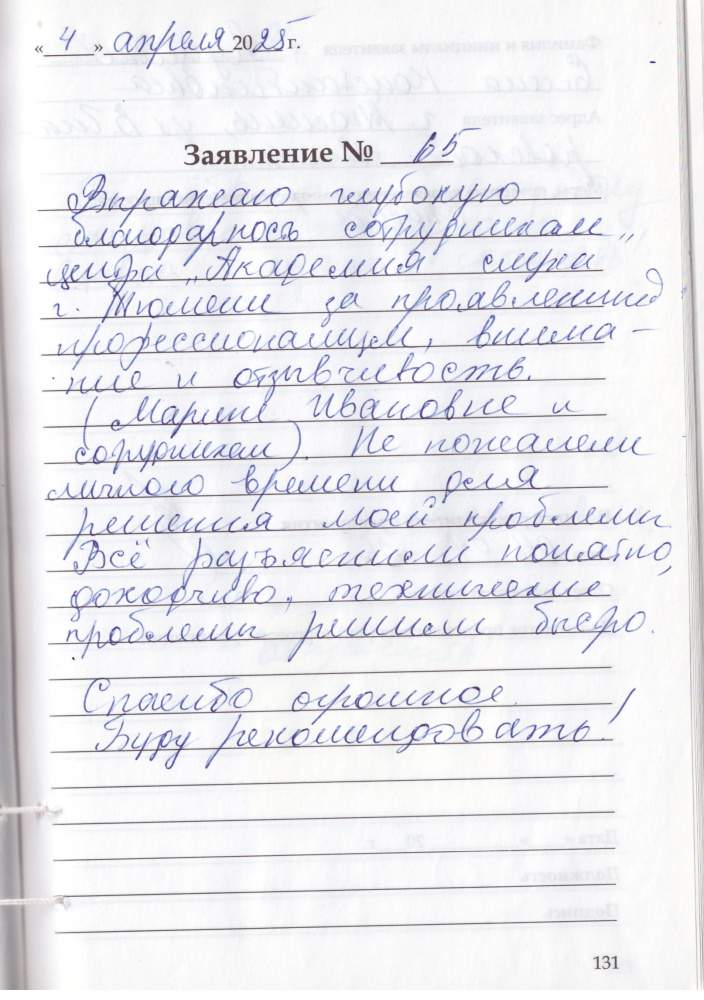 « 4 » апреля 2025 г.
Заявление № 65
Выражаю глубокую
благодарность сотрудникам
центра „Академия слуха"
г. Тюмени за проявленный
профессионализм, внима-
ние и отзывчивость.
(Марине Ивановне и
сотрудникам). Не пожалели
личного времени для
решения моей проблемы
Всё разъяснили понятно,
доходчиво, технические
проблемы решили быстро.
Спасибо огромное
Буду рекомендовать!
131